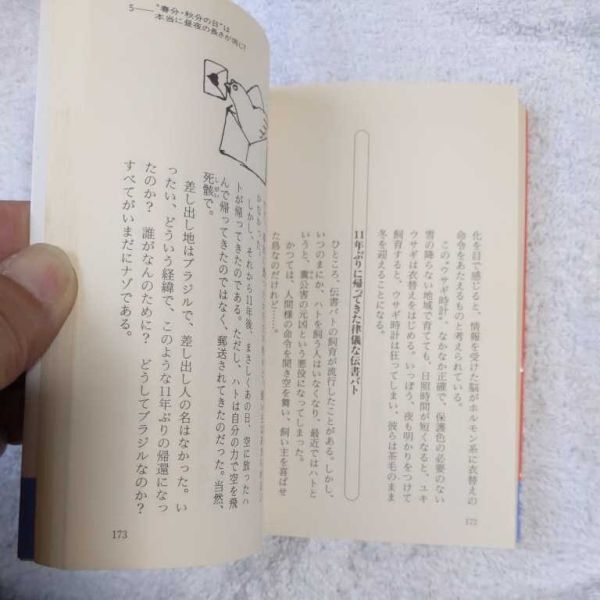 化を目で感じると、情報を受けた脳がホルモン系に衣替えの
命令をあたえるものと考えられている。
この〝ウサギ時計〟、なかなか正確で、保護色の必要のない
雪の降らない地域で育てても、日照時間が短くなると、ユキ
ウサギは衣替えをはじめる。いっぽう、夜も明かりをつけて
飼育すると、ウサギ時計は狂ってしまい、彼らは茶毛のまま
冬を迎えることになる。
11年ぶりに帰ってきた律儀な伝書バト
ひところ、伝書バトの飼育が流行したことがある。しかし、
いつのまにか、ハトを飼う人はいなくなり、最近ではハトと
いうと、糞公害の元凶という悪役になってしまった。
かつては、人間様の命令を聞き空を舞い、飼い主を喜ばせ
た鳥なのだけれど……。
172
5——〝春分・秋分の日〟は
本当に昼夜の長さが同じ?
かなかった。
しかし、それから11年後、まさしくあの日、空に放ったハ
トが帰ってきたのである。ただし、ハトは自分の力で空を飛
んで帰ってきたのではなく、郵送されてきたのだった。当然、
死骸で。
差し出し地はブラジルで、差し出し人の名はなかった。い
ったい、どういう経緯で、このような11年ぶりの帰還になっ
たのか? 誰がなんのために? どうしてブラジルなのか?
すべてがいまだにナゾである。
173